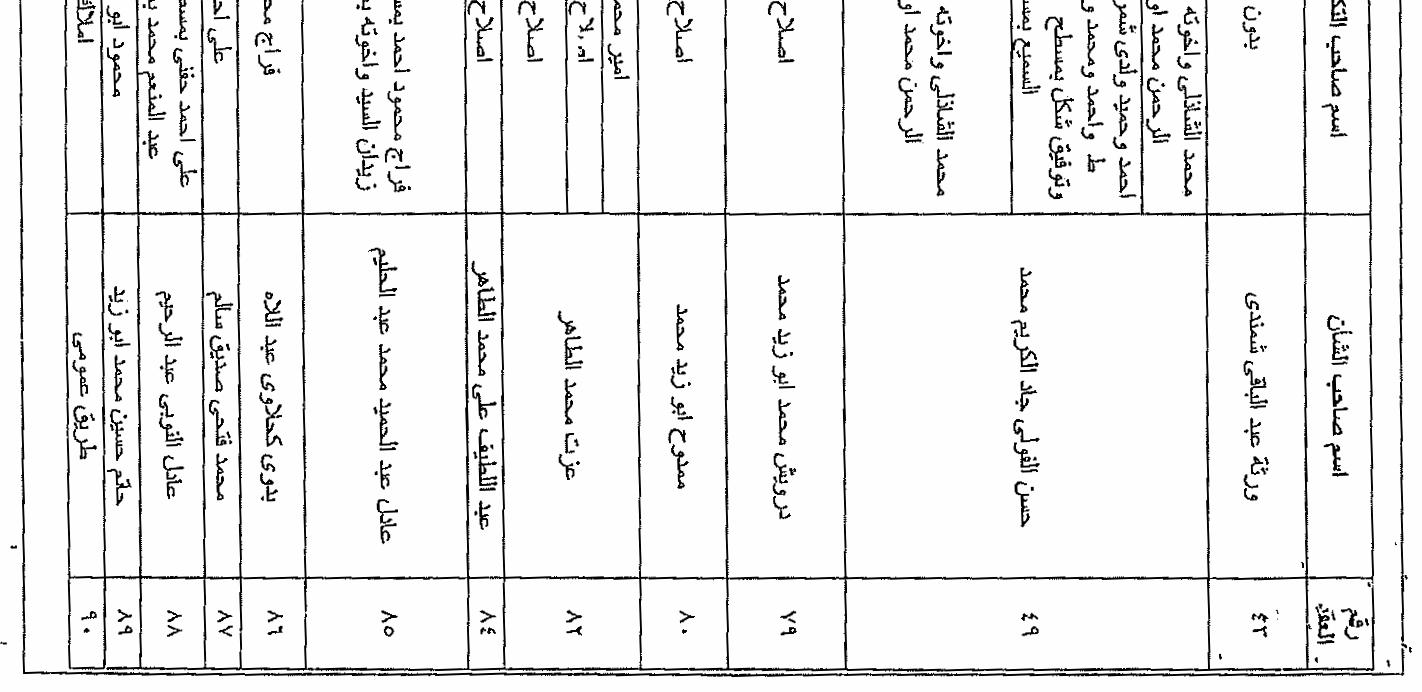 رقم
العقد
اسم صاحب الشأن
اسم صاحب
٤٣
ورثة عبد الباقى شمندى
بدون
٤٩
حسن الفولى جاد الكريم محمد
محمد الشاذلى واخوته
الرحمن محمد
احمد وحميد ولدى
ط واحمد ومحمد و
وتوفيق شكل بمسطح
السميع
محمد الشاذلى واخوته
الرحمن محمد
٧٩
درويش محمد ابو زيد محمد
اصلاح
٨٠
ممدوح ابو زيد محمد
اصلاح
٨٢
عزت محمد الطاهر
امير
اصلاح
اصلاح
٨٤
عبد اللطيف على محمد الطاهر
اصلاح
٨٥
عادل عبد الحميد محمد عبد الحليم
فراج محمود احمد
زيدان السيد واخوته
٨٦
بدوى كحلاوى عبد اللاه
فراج
٨٧
محمد فتحى صديق سالم
على
٨٨
عادل النوبى عبد الرحيم
على احمد حفنى
عبد المنعم محمد
٨٩
حاتم حسين محمد ابو زيد
محمود ابو
٩٠
طريق عمومى